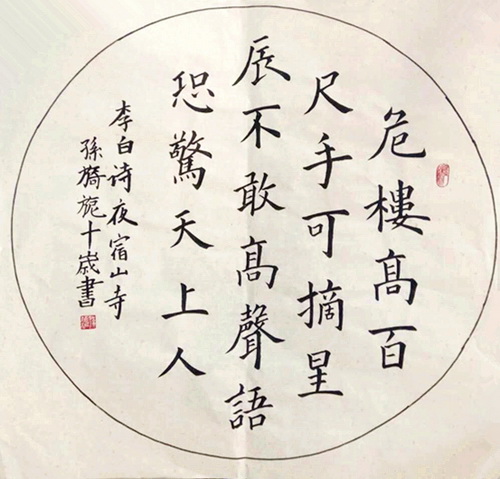 危樓高百
尺手可摘星
辰不敢高聲語
恐驚天上人
李白诗夜宿山寺
孫旖旎十歲書